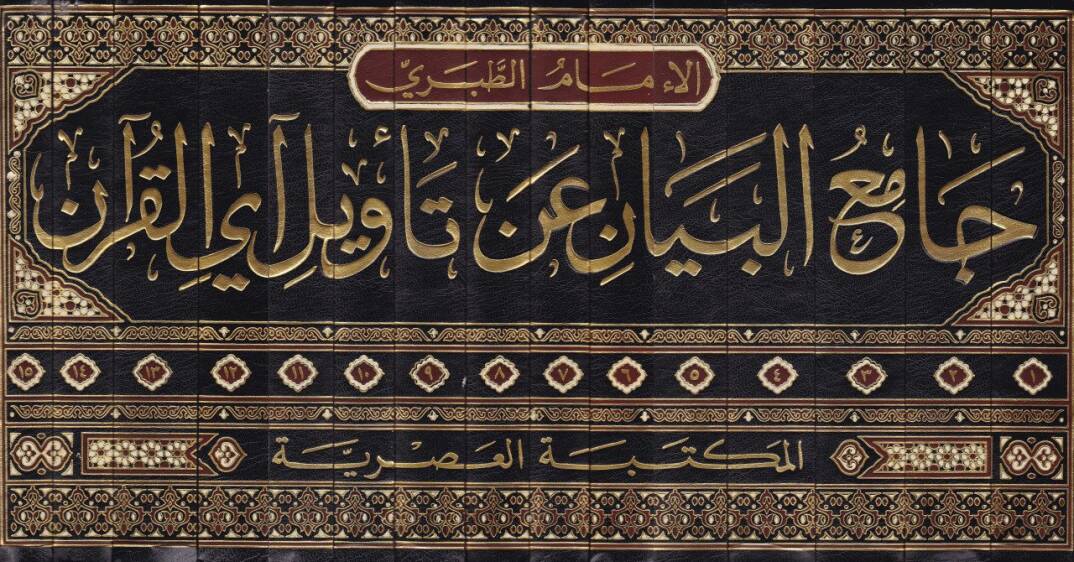 الإمام الطَّبَريّ
جَامِعُ البَيَانِ عَن تَأويلِ آيِ القُرآن
١ ٢ ٣ ٤ ٥ ٦ ٧ ٨ ٩ ١٠ ١١ ١٢ ١٣ ١٤ ١٥
المكتَبة العَصريَّة